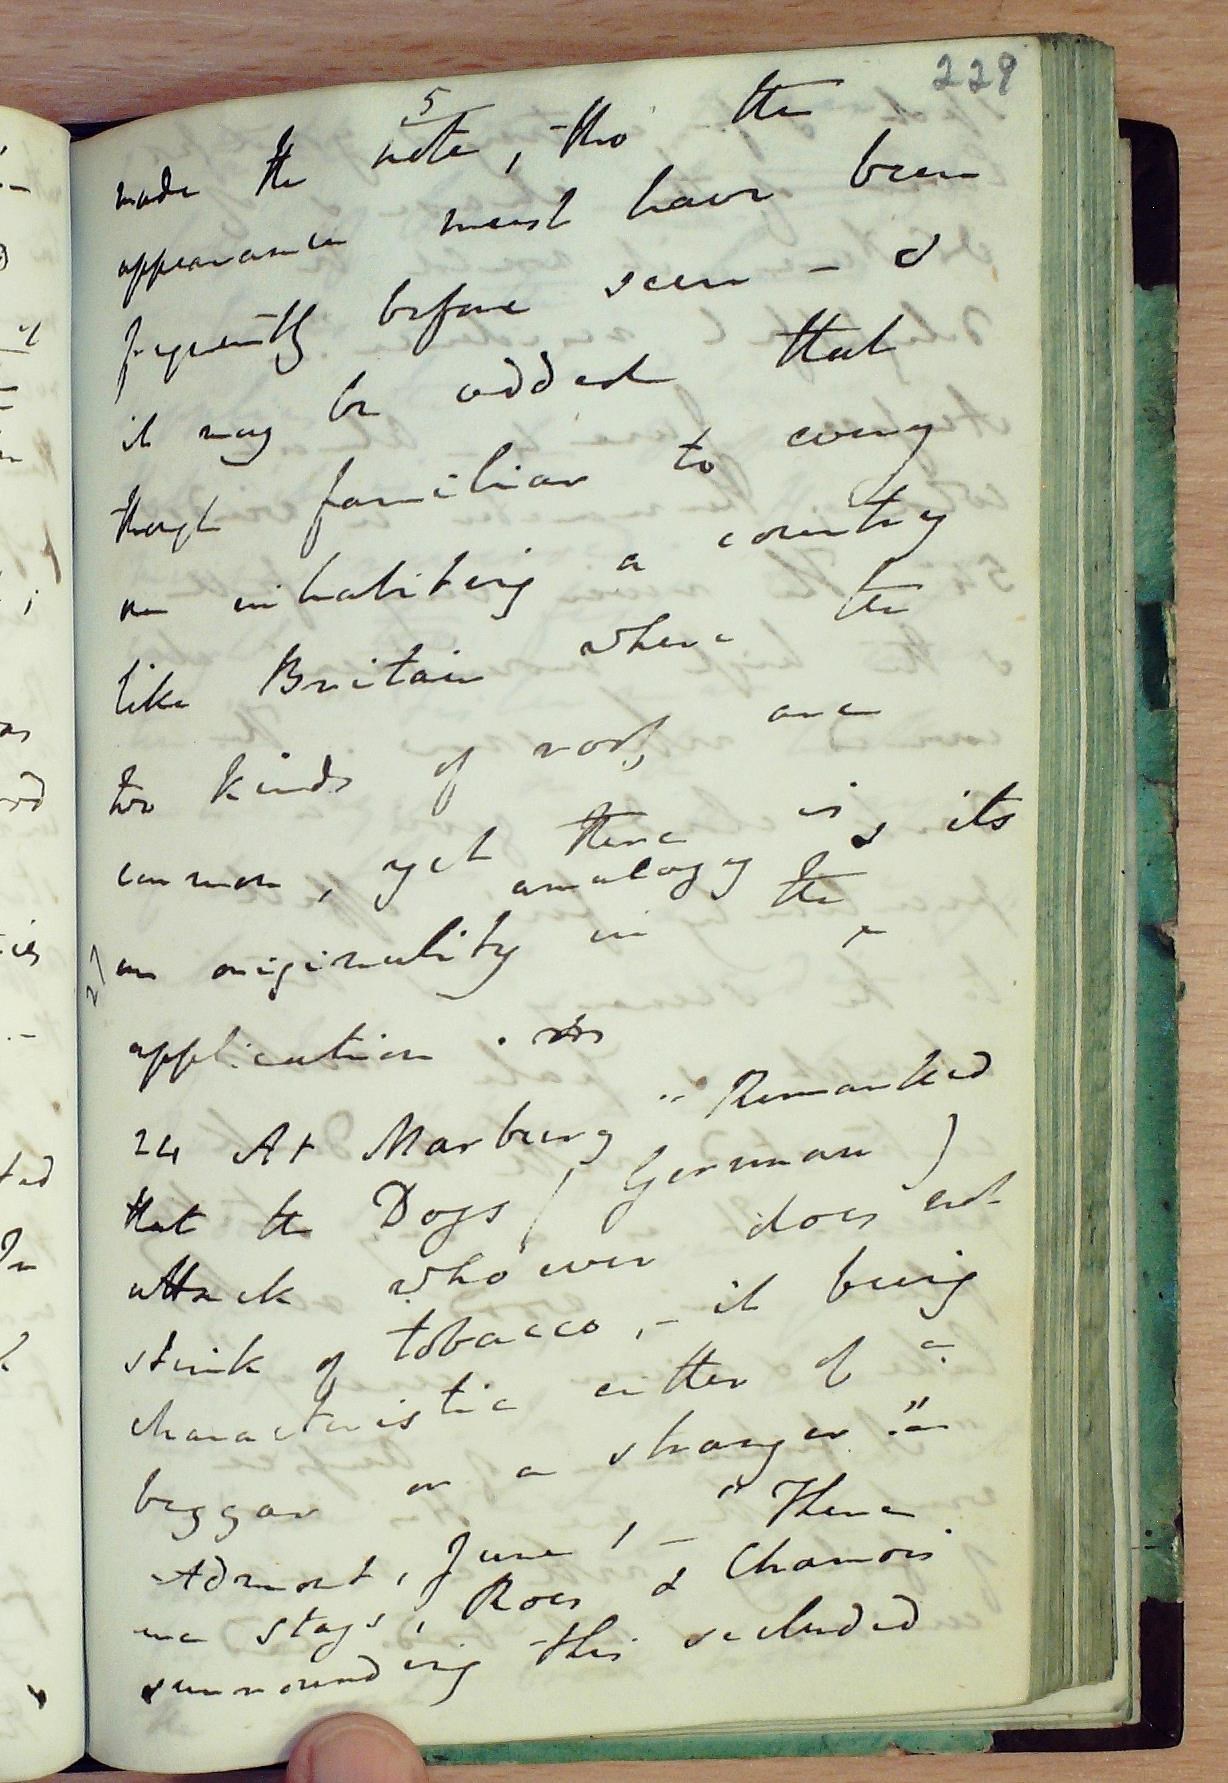 229
5
made the note, tho the
appearance must have been
frequently before seen - &
it may be added that
though familiar to every
one inhabiting a country
like Britain where the
two kinds of rock are
common, yet there is
an originality in the analogy & its
application.
24 At Marburg "Remarked
that the Dogs (German)
attack whoever does not
stink of tobacco, - it being
characteristic either of a
beggar or a stranger."
Admont, June 1 - "There
are stags, Roes & Chamois
surrounding this secluded